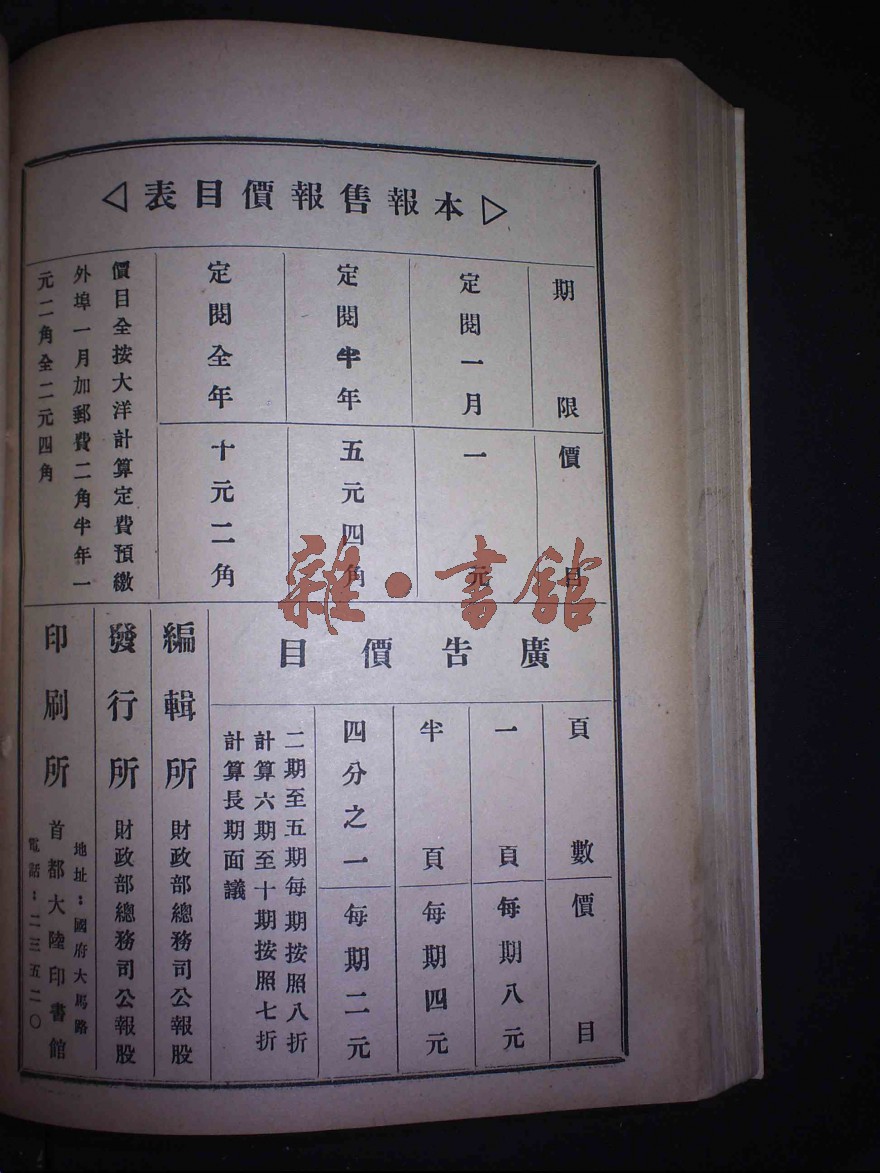 ▷本報售報價目表◁
期限
價目
定閱一月
一元
定閱半年
五元四角
定閱全年
十元二角
價目全按大洋計算定費預繳
外埠一月加郵費二角半年一
元二角全二元四角
廣告價目
頁數
價目
一頁
每期八元
半頁
每期四元
四分之一
每期二元
二期至五期每期按照八折
計算六期至十期按照七折
計算長期面議
編輯所 財政部總務司公報股
發行所 財政部總務司公報股
印刷所 首都大陸印書館
地址：國府大馬路
電話：二三五二〇
雜·書館